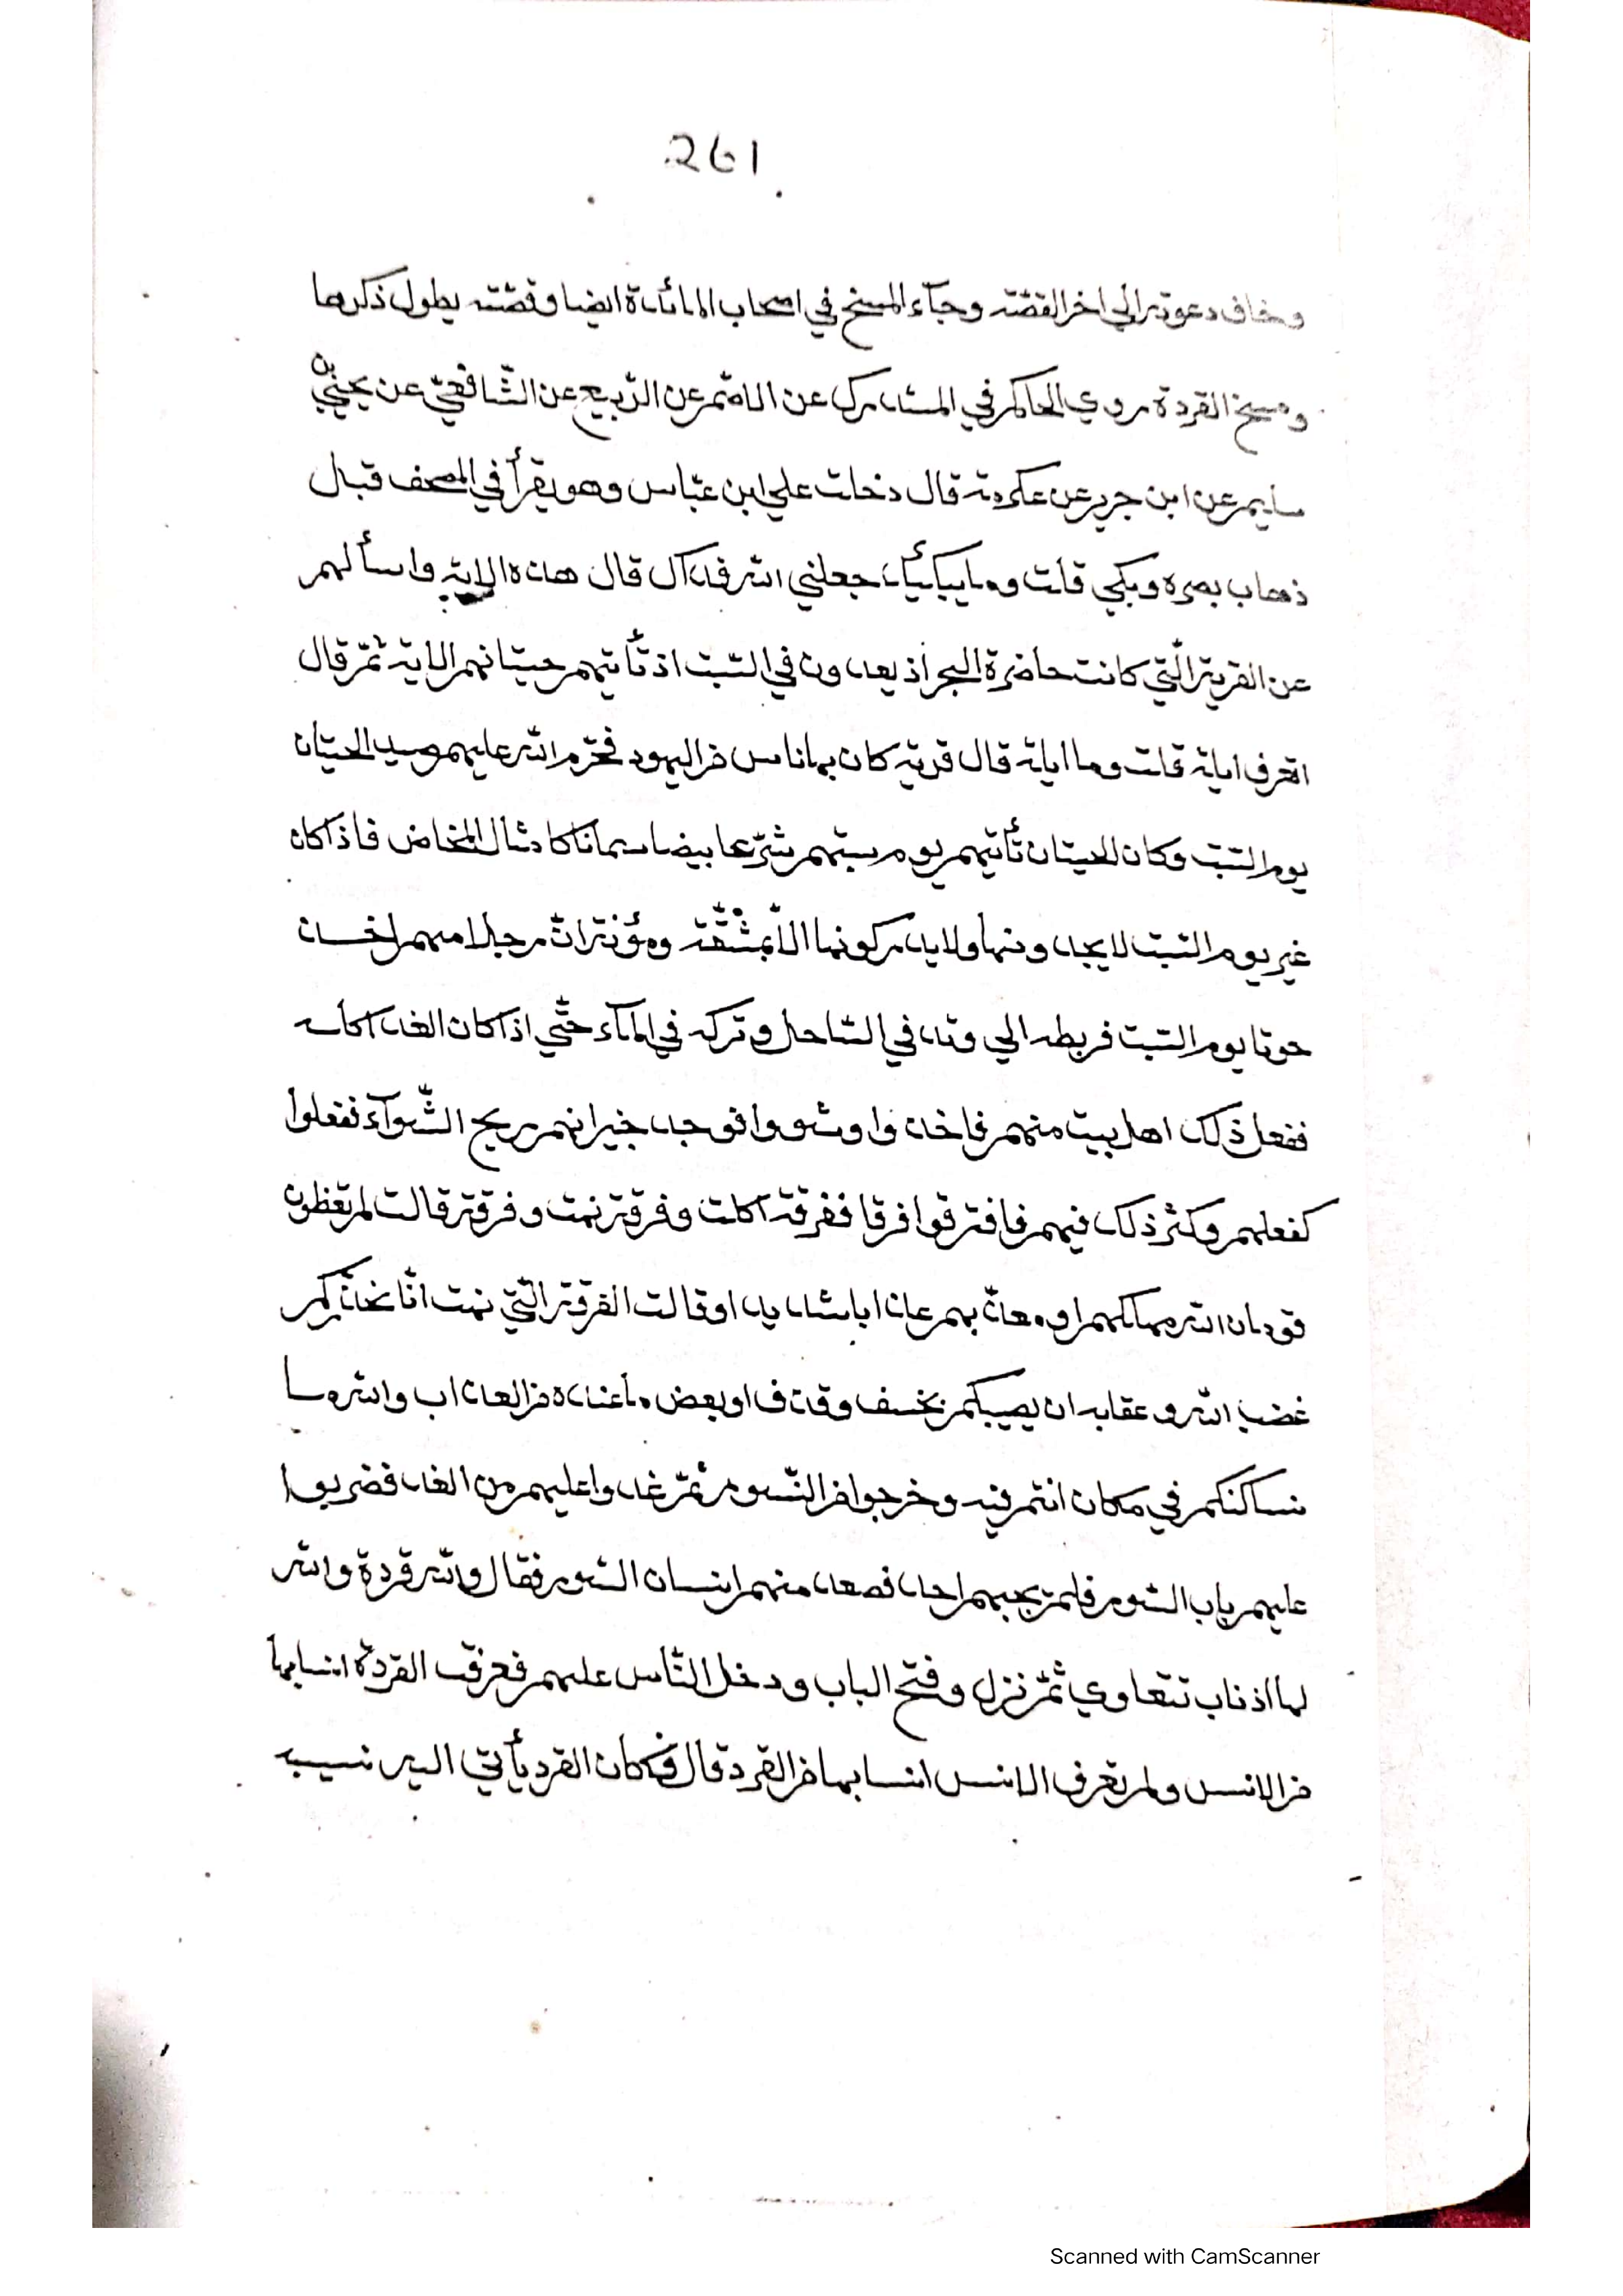 261
وخاف دعوته الي اخر القصّة وجآء المسخ في اصحاب المائدة ايضا وقصّته يطول ذكرها
ومسخ القردة روي الحاكم في المستدرك عن الاصّم عن الرّبيع عن الشّافعيّ عن يحيي بن
سليم عن ابن جرير عن عكرمة قال دخلت علي ابن عبّاس وهو يقرأ في المصحف قبال
ذهاب بصره ويبكي قلت وما يبكيك جعلني الله فداك قال هذه الاية واسألهم
عن القرية الّتي كانت حاضرة البحر اذ يعدون في السّبت اذ تأتيهم حيتانهم الاية ثمّ قال
اتعرف ايلة قلت وما ايلة قال قرية كان بها ناس من اليهود فحرّم الله عليهم صيد الحيتان
يوم السّبت وكان الحيتان تأتيهم يوم سبتهم شرّعا بيضا سمانا كامثال المخاض فاذا كان
غير يوم السّبت لا يجدونها ولا يدركونها الاّ بمشقّة ومؤنة انّ رجلا منهم اخذ
حوتا يوم السّبت فربطه الي وتد في السّاحل وتركه في المآء حتّي اذا كان الغد اكله
ففعل ذلك اهل بيت منهم فاخذوا وشووا فوجد جيرانهم ريح الشّوآء ففعلوا
كفعلهم وكثر ذلك فيهم فافترقوا فرقا ففرقة اكلت وفرقة نهت وفرقة قالت لم تعظون
قوما ن الله مهلكهم او معذّبهم عذابا شديدا وقالت الفرقة الّتي نهت انّا نحذّركم
غضب الله وعقابه ان يصيبكم بخسف وقذف او بعض ما عنده من العذاب والله ما
نساكنكم في مكان انتم فيه وخرجوا من السّور ثمّ غدوا عليهم من الغد فضربوا
عليهم باب السّور فلم يجبهم احد فصعد منهم انسان السّور فقال والله قردة والله
لها اذناب تتعاوي ثمّ نزل وفتح الباب ودخل النّاس عليهم فعرفت القردة انسابها
من الانس ولم تعرف الانس انسابها من القرد قال فكان القرد يأتي اليه نسيبه
Scanned with CamScanner